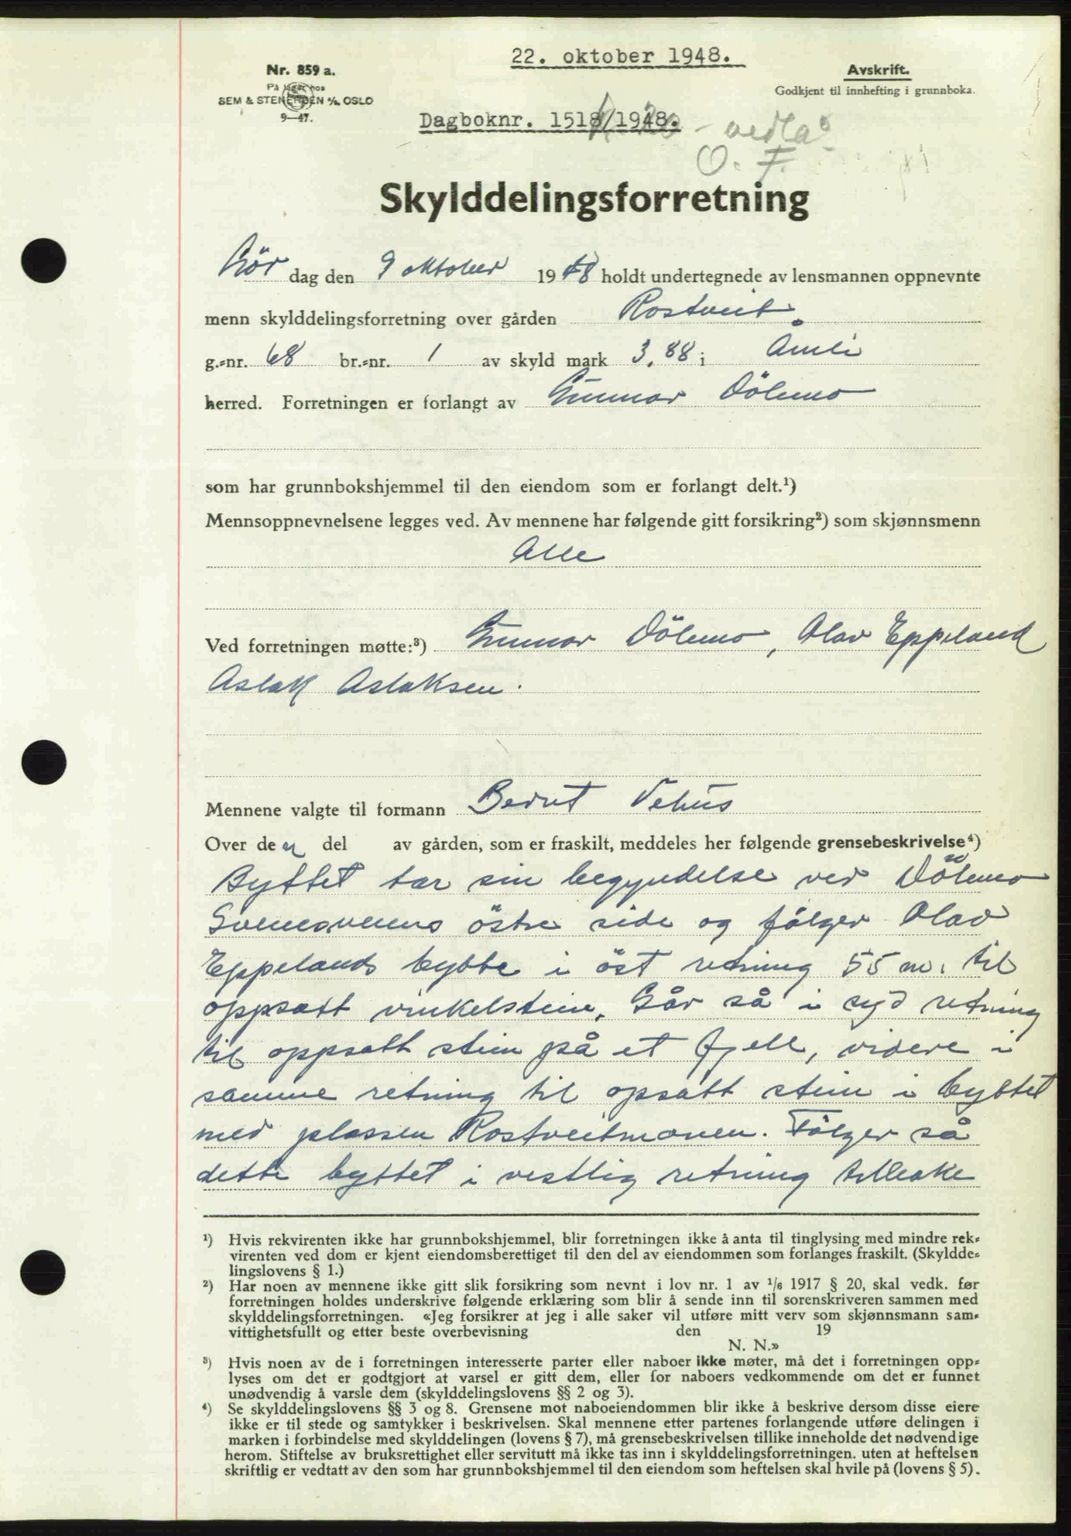 22. oktober 1948.
Nr. 859 a.
På lager hos
SEM & STENERSEN A/S, OSLO
9—47.
Avskrift.
Godkjent til innhefting i grunnboka.
Dagboknr. 1518/1948.
O. F.
Skylddelingsforretning
Lör dag den 9 oktober 1948 holdt undertegnede av lensmannen oppnevnte
menn skylddelingsforretning over gården Rostveit
g.-nr. 68 br.-nr. 1 av skyld mark 3,88 i Åmli
herred. Forretningen er forlangt av Gunnar Dölemo
som har grunnbokshjemmel til den eiendom som er forlangt delt.¹)
Mennsoppnevnelsene legges ved. Av mennene har følgende gitt forsikring²) som skjønnsmenn
Alle
Ved forretningen møtte:³) Gunnar Dölemo, Olav Eppeland
Aslak Aslaksen.
Mennene valgte til formann Bernt Vehus
Over den del av gården, som er fraskilt, meddeles her følgende grensebeskrivelse⁴)
Byttet tar sin begyndelse ved Dölemo
östre side og fölger Olav
Eppelands bytte i öst retning 55 m. til
oppsatt vinkelstein. Går så i syd retning
til oppsatt stein på et fjell, videre i
samme retning til opsatt stein i byttet
med plassen Rostveitmoen. Fölger så
dette byttet i vestlig retning tilbake
¹) Hvis rekvirenten ikke har grunnbokshjemmel, blir forretningen ikke å anta til tinglysing med mindre rek-
virenten ved dom er kjent eiendomsberettiget til den del av eiendommen som forlanges fraskilt. (Skyldde-
lingslovens § 1.)
²) Har noen av mennene ikke gitt slik forsikring som nevnt i lov nr. 1 av 1/6 1917 § 20, skal vedk. før
forretningen holdes underskrive følgende erklæring som blir å sende inn til sorenskriveren sammen med
skylddelingsforretningen. «Jeg forsikrer at jeg i alle saker vil utføre mitt verv som skjønnsmann sam-
vittighetsfullt og etter beste overbevisning den 19
N. N.»
³) Hvis noen av de i forretningen interesserte parter eller naboer ikke møter, må det i forretningen opp-
lyses om det er godtgjort at varsel er gitt dem, eller for naboers vedkommende om det er funnet
unødvendig å varsle dem (skylddelingslovens §§ 2 og 3).
⁴) Se skylddelingslovens §§ 3 og 8. Grensene mot naboeiendommen blir ikke å beskrive dersom disse eiere
ikke er til stede og samtykker i beskrivelsen. Skal mennene etter partenes forlangende utføre delingen i
marken i forbindelse med skylddelingen (lovens § 7), må grensebeskrivelsen tillike inneholde det nødvendige
herom. Stiftelse av bruksrettighet eller servitutt må ikke tas inn i skylddelingsforretningen, uten at heftelsen
skriftlig er vedtatt av den som har grunnbokshjemmel til den eiendom som heftelsen skal hvile på (lovens § 5).